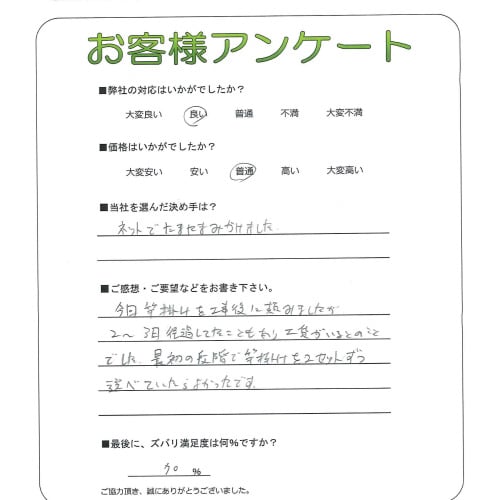 お客様アンケート
■弊社の対応はいかがでしたか？
大変良い 良い 普通 不満 大変不満
■価格はいかがでしたか？
大変安い 安い 普通 高い 大変高い
■当社を選んだ決め手は？
ネットでたまたまみかけました.
■ご感想・ご要望などをお書き下さい。
今回竿掛けを工事後に頼みましたが
2～3日経過してたこともあり工賃がいるとのこと
でした.最初の段階で竿掛けを2セットずつ
選べていたらよかったです.
■最後に、ズバリ満足度は何%ですか？
%
ご協力頂き、誠にありがとうございました。